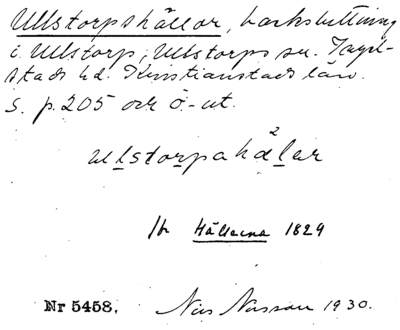 Ullstorpshällor, backsluttning
i Ullstorp, Ullstorps sn. Ingel-
stads hd. Kristianstads län.
S. p. 205 och ö-ut.
ullstorpahälar
2
Hällorna 1829
Nr 5458. Nils Nilsson 1930.